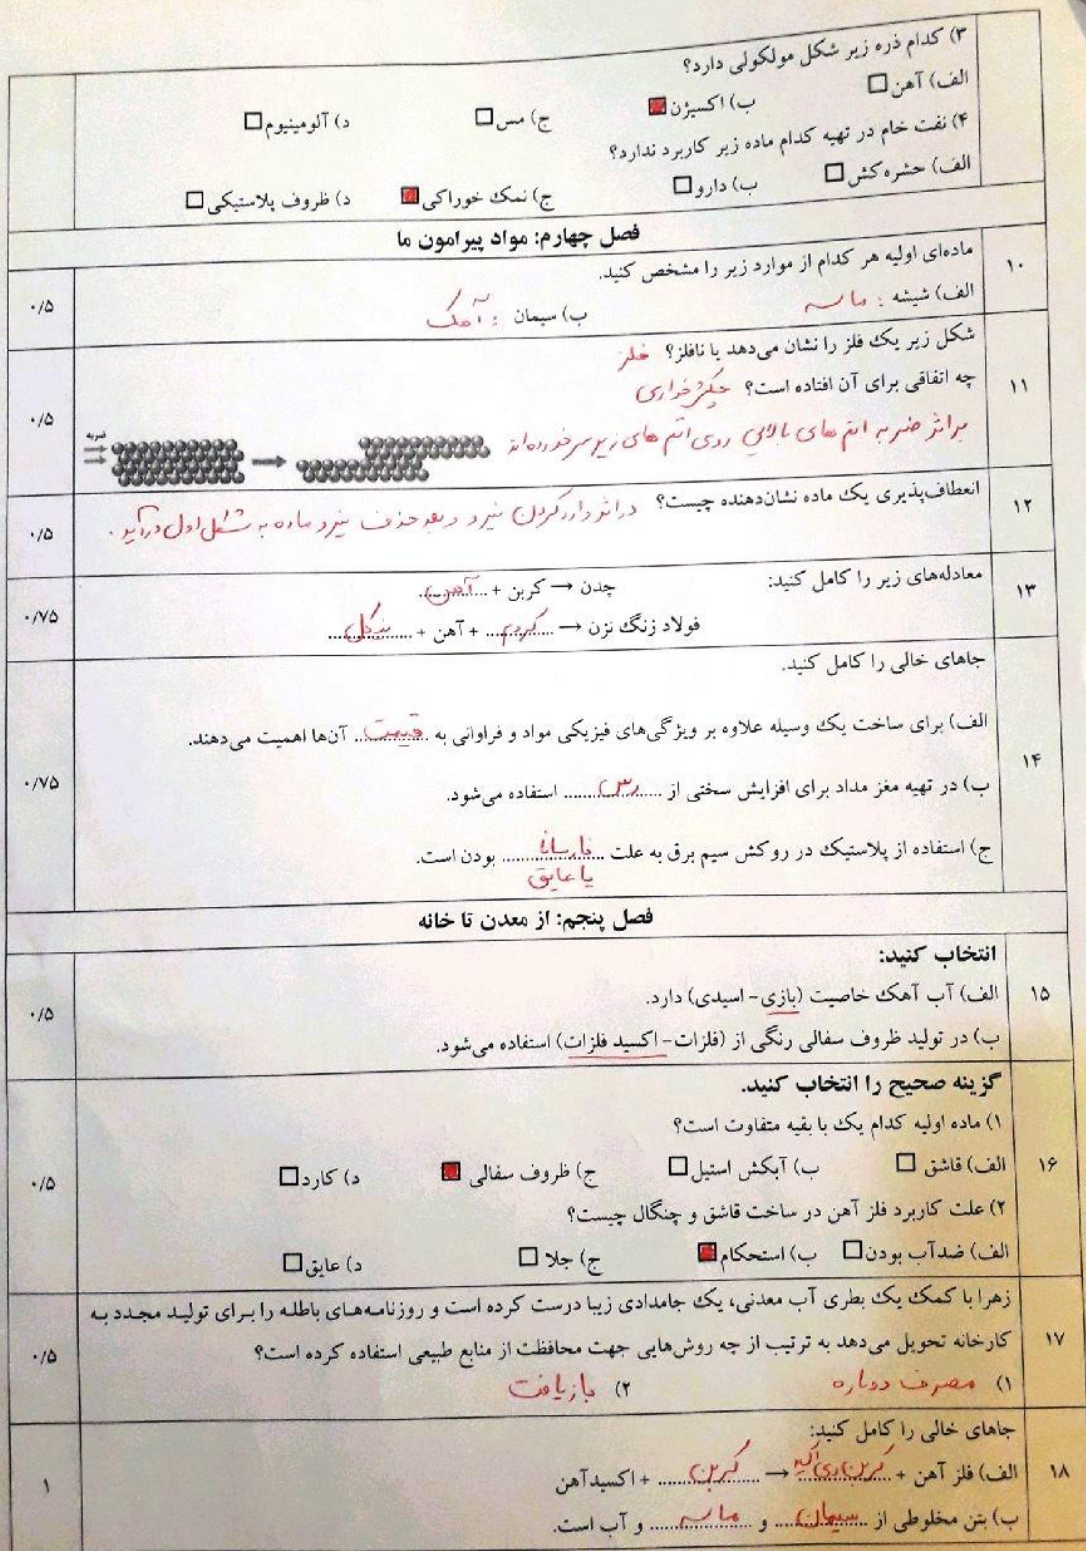 ۳) کدام ذره زیر شکل مولکولی دارد؟
الف) آهن ب) اکسیژن ج) مس د) آلومینیوم
۴) نفت خام در تهیه کدام ماده زیر کاربرد ندارد؟
الف) حشره کش ب) دارو ج) نمک خوراکی د) ظروف پلاستیکی
فصل چهارم: مواد پیرامون ما
۱۰ ماده‌ای اولیه هر کدام از موارد زیر را مشخص کنید. ۰/۵
الف) شیشه : ماسه ب) سیمان : آهک
۱۱ شکل زیر یک فلز را نشان می‌دهد یا نافلز؟ فلز ۰/۵
چه اتفاقی برای آن افتاده است؟ چکش‌خواری
براثر ضربه اتم های بالایی روی اتم های زیر سرخورده‌اند
ضربه
۱۲ انعطاف‌پذیری یک ماده نشان‌دهنده چیست؟ دراثر وارد کردن نیرو و بعد حذف نیرو ماده به شکل اول درآید. ۰/۵
۱۳ معادله‌های زیر را کامل کنید: ۰/۷۵
چدن → کربن + آهن
فولاد زنگ نزن → کروم + آهن + نیکل
۱۴ جاهای خالی را کامل کنید. ۰/۷۵
الف) برای ساخت یک وسیله علاوه بر ویژگی‌های فیزیکی مواد و فراوانی به قیمت آن‌ها اهمیت می‌دهند.
ب) در تهیه مغز مداد برای افزایش سختی از رس استفاده می‌شود.
ج) استفاده از پلاستیک در روکش سیم برق به علت نارسانا بودن است.
یا عایق
فصل پنجم: از معدن تا خانه
انتخاب کنید:
۱۵ الف) آب آهک خاصیت (بازی- اسیدی) دارد. ۰/۵
ب) در تولید ظروف سفالی رنگی از (فلزات- اکسید فلزات) استفاده می‌شود.
گزینه صحیح را انتخاب کنید.
۱) ماده اولیه کدام یک با بقیه متفاوت است؟
۱۶ الف) قاشق ب) آبکش استیل ج) ظروف سفالی د) کارد ۰/۵
۲) علت کاربرد فلز آهن در ساخت قاشق و چنگال چیست؟
الف) ضدآب بودن ب) استحکام ج) جلا د) عایق
زهرا با کمک یک بطری آب معدنی، یک جامدادی زیبا درست کرده است و روزنامه‌های باطله را برای تولید مجدد به
۱۷ کارخانه تحویل می‌دهد به ترتیب از چه روش‌هایی جهت محافظت از منابع طبیعی استفاده کرده است؟ ۰/۵
۱) مصرف دوباره ۲) بازیافت
جاهای خالی را کامل کنید:
۱۸ الف) فلز آهن + کربن دی اکسید → کربن + اکسیدآهن ۱
ب) بتن مخلوطی از سیمان و ماسه و آب است.